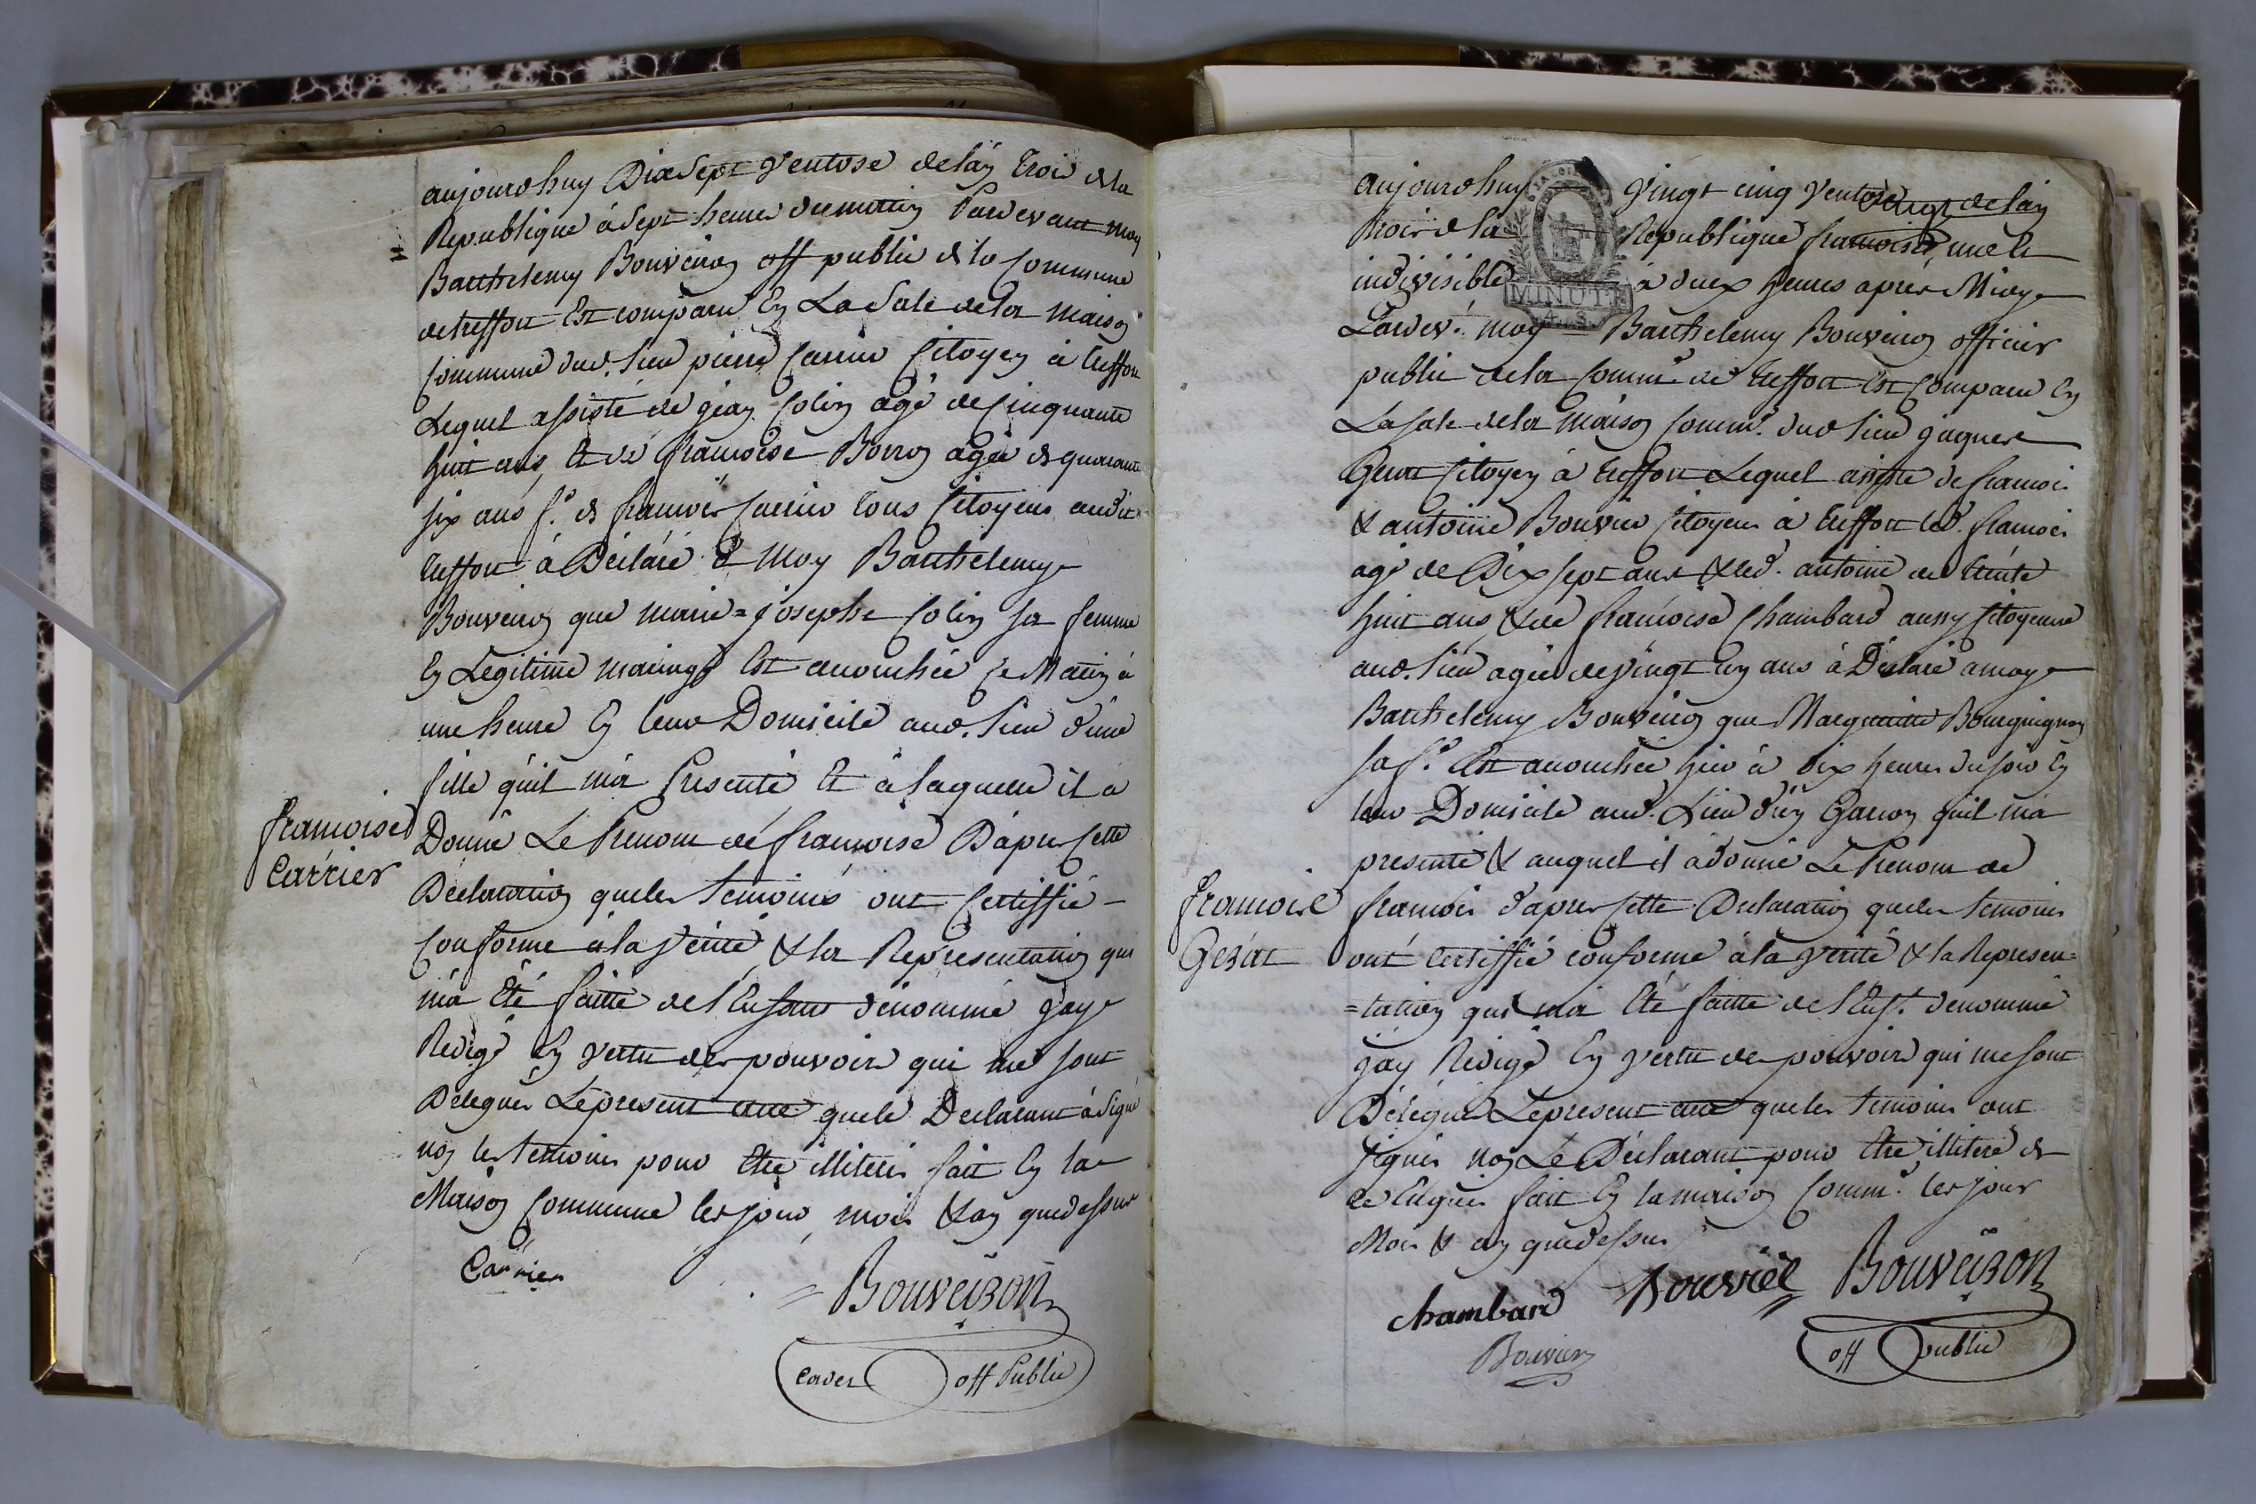 aujourdhuy Dixsept Ventose delan trois dela
Republique à sept heures du matin Pardevant moy
Barthelemy Bouveiron off public de la Commune
de treffort Est comparu En La Sale dela maison
Commune dud. lieu pierre Carrier Citoyen à treffort
Lequel assisté de jean Colin agé de Cinquante
huit ans, Et de francoise Borron agée de quarante
six ans f.e de francois Carrier tous Citoyens audit
treffort à Déclaré à Moy Barthelemy
Bouveiron que marie=josephe Colin sa femme
En Legitime mariage Est accouchée Ce Matin à
une heure En leur Domicile aud. lieu d'une
fille quil m'a Presenté Et à laquelle il a
Donné Le Prenom de francoise D'apres Cette
Declaration queles temoins ont Certiffié
Conforme à la Vérité & la Representation qui
m'a Eté faitte de l'Enfant dénommé jay
Redigé En vertu des pouvoirs qui me sont
Délegués Le present acte quele Declarant à signé
non les temoins pour Etre illiterés fait En la
Maison Commune les jour, mois & an quedessus
francoise
Carrier
Carrier
Bouveiron
off Public
aujourdhuy Vingt cinq Ventose delan
trois de la Republique francoise, une &
indivisible à deux heures après Midy
MINUTE
Pardev.t moy Barthelemy Bouveiron officier
public dela Comm.e de treffort Est Comparu En
La sale dela Maison Comm.e dud lieu jaques
Gerat Citoyen à treffort Lequel assisté de francois
& antoine Bouvier Citoyens à treffort led. francois
agé de Dix sept ans & led. antoine de trente
huit ans & de francoise Chambard aussy Citoyenne
aud. lieu agée de vingt Un ans à Déclaré a moy
Barthelemy Bouveiron que Marguerite Bourguignon
sa f.e Est accouchée hier à dix heures du soir En
leur Domicile aud. Lieu d'un Garcon quil m'a
presenté & auquel il à donné Le Prenom de
francois d'apres Cette Declaration queles temoins
ont certiffié conforme à la verité & la Represen=
=tation qui m'a Eté faitte de l'Enf.t denommé
jay Redigé En vertu des pouvoirs qui me sont
Délégués Le present acte queles temoins ont
signés non Le Déclarant pour Etre illiteré de
ce Enquis fait En la maison Comm.e les jour
Mois & an quedessus
francois
Gerat
chambard Bouvier Bouveiron
Bouvier
off public